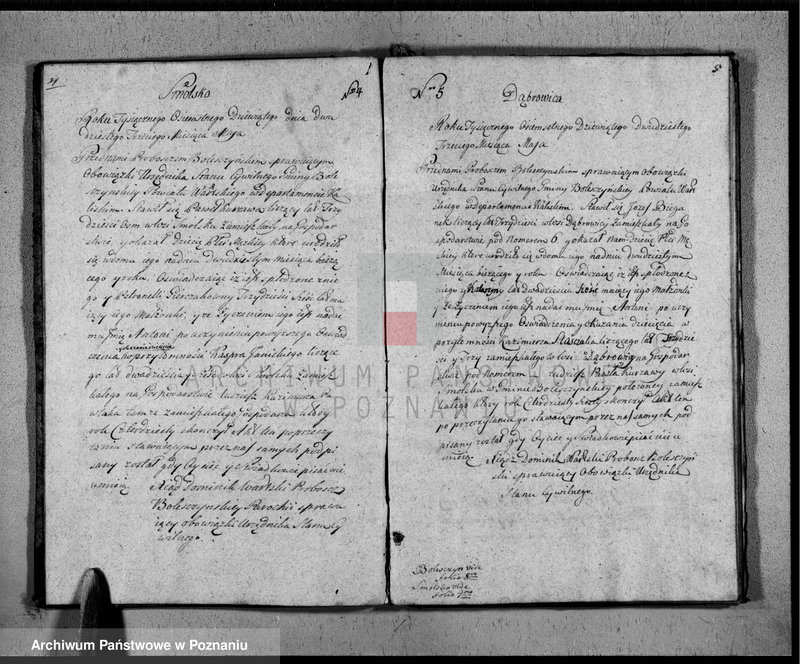 4
1
Smolsko
Nro 4
Roku Tysięcznego Osiemsetnego Dziewiątego dnia Dwu
dziestego Trzeciego Miesiąca Maja
Przednami Proboszczem Boleszyńskim sprawującym
Obowiązki Urzędnika Stanu Cywilnego Gminy Bole
szyńskiey Powiatu Wartskiego w Departamencie Ka
liskim. Stawił się Paweł Kurzawa liczący lat Trzy
dzieści Osm w wsi Smolsku zamieszkały na Gospodar
stwie, y okazał dziecię płci Męzkiey które urodziło
się w domu iego na dniu dwudziestym miesiąca bieżą
cego y roku. Oświadczaiąc iż iest spłodzone z nie
go y Petronelli lat ma
iący iego Małżonki, y że życzeniem iego iest nadać
mu Imię Antoni po uczynieniu powyższego Oświad
czenia w przytomności Kaspra liczące
go lat dwadzieścia
kałego na Gospodarstwie tudzież Kazimierza
tamże zamieszkałego Gospodarza który
rok Czterdziesty skończył Akt ten po przeczy
taniu stawaiącym przez nas samych podpi
sany został gdy Oyciec y Świadkowie pisać nie
umieią. Xiądz Dominik Wartski Proboszcz
Boleszyńskiey Parochii sprawu
iący obowiązki Urzędnika Stanu Cy
wilnego.
Nro 5
5
Dąbrowica
Roku Tysięcznego Osiemsetnego Dziewiątego dwudziestego
Trzeciego Miesiąca Maja
Przednami Proboszczem Boleszyńskim sprawuiącym obowiązki
Urzędnika Stanu Cywilnego Gminy Boleszyńskiey Powiatu War
tskiego w Departamencie Kaliskim. Stawił się Józef Biega
nek liczący lat Trzydzieści w wsi Dąbrowicy zamieszkały na Go
spodarstwie pod Numerem 6. y okazał nam dziecię płci Mę
skiey które urodziło się w domu iego na dniu dwudziestym
Miesiąca bieżącego y roku Oświadczaiąc iż iest spłodzone z
niego y lat Dwadzieścia Sześć maiący iego Małżonki
y że życzeniem iego iest nadać mu Imię Antoni po uczy
nieniu powyższego Oświadczenia y okazania dziecięcia w
przytomności Kazimierza liczącego lat Trzydzie
ści y Trzy zamieszkałego w wsi Dąbrowicy na Gospodar
stwie pod Numerem tudzież Kurzawy w wsi
Smolsku w Gminie Boleszyńskiey położoney zamiesz
kałego który rok Czterdziesty Szósty skończył Akt ten
po przeczytaniu go stawaiącym przez nas samych pod
pisany został gdy Oyciec y Świadkowie pisać nie u
mieią. Xiądz Dominik Wartski Proboszcz Boleszyń
ski sprawuiący Obowiązki Urzędnika
Stanu Cywilnego.
Boleszyn vide
folio 8vo
Smolsko vide
folio
ARCHIWUM PAŃSTWOWE
W POZNANIU
Archiwum Państwowe w Poznaniu